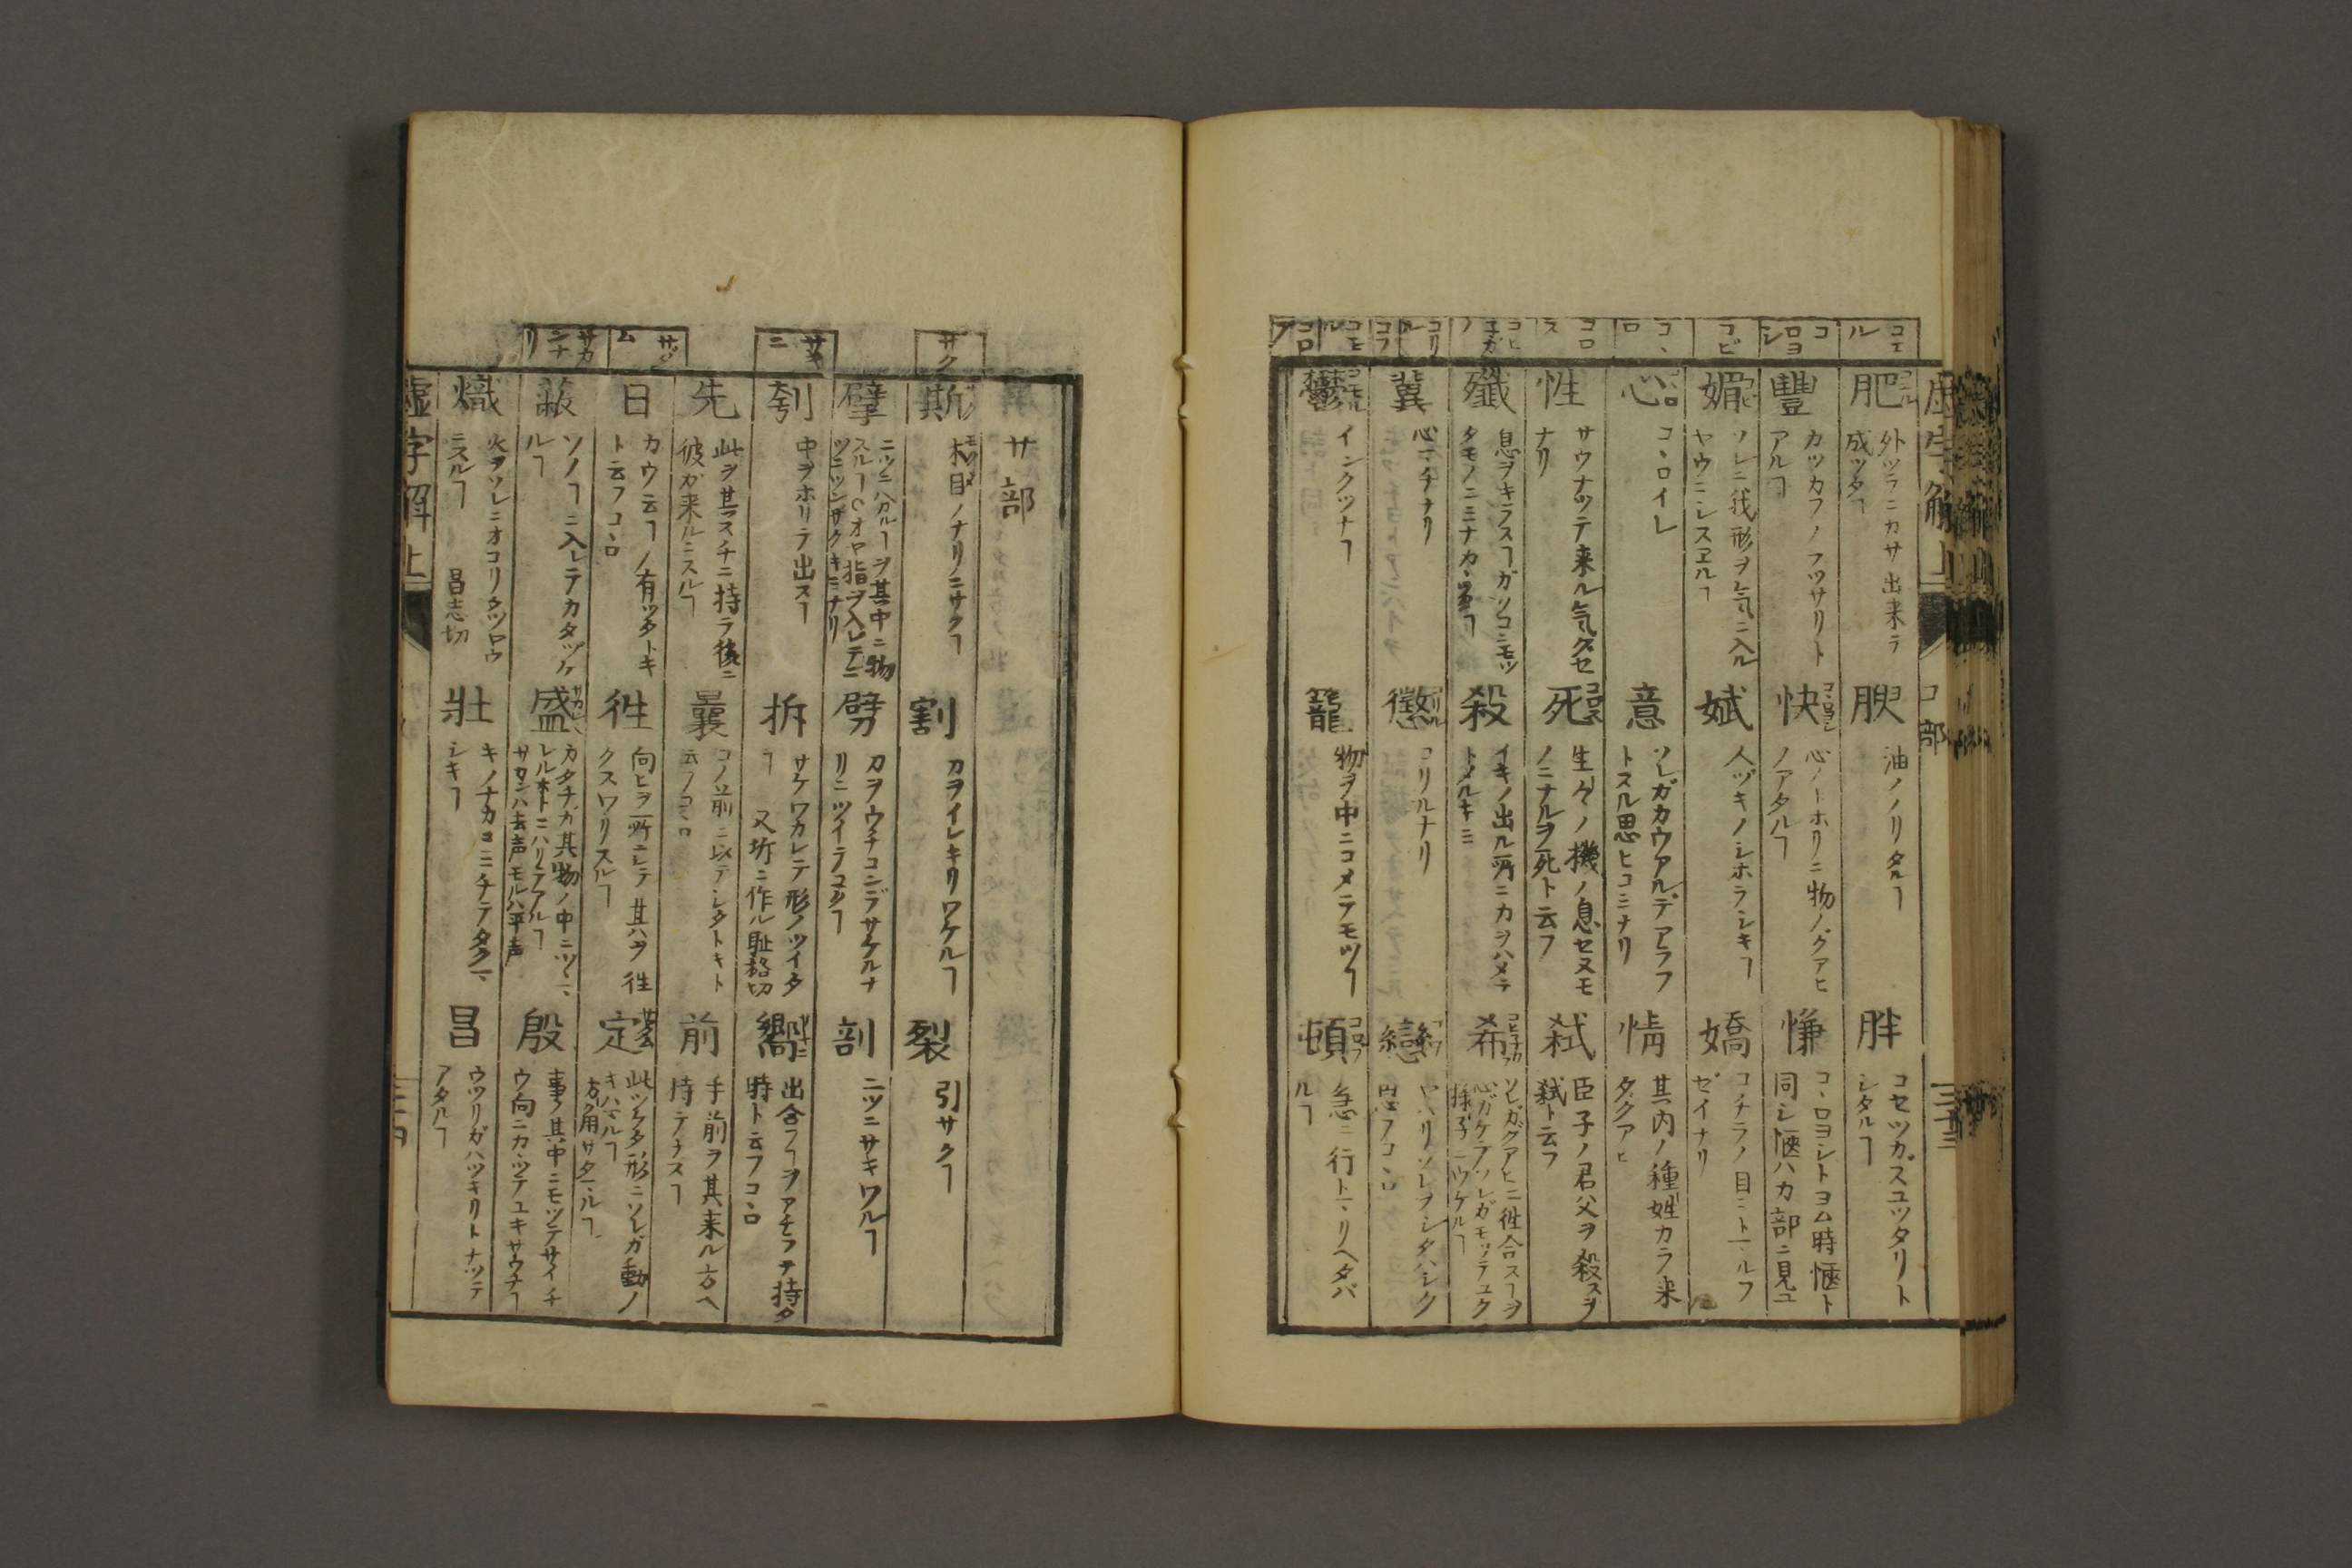 虚字解上
コ部
三十三
コエル
肥
外ツラニカサ出来テ
成ッタヿ
腴
油ノノリタルヿ
胖
コセツカズユツタリト
シタルヿ
コロヨシ
豐
カツカフノフツサリト
アルヿ
快
心ノトホリニ物ノグアヒ
ノアタルヿ
慊
コヽロヨシトヨム時愜ト
同シ愜ハカ部ニ見ユ
コビ
媚
ソレニ我形ヲ気ニ入ル
ヤウニシスヱルヿ
娬
人ヅキノシホラシキヿ
嬌
コチラノ目ニトマルフ
ゼイナリ
コヽロ
心
コヽロイレ
意
ソレガカウアルデアラフ
トスル思ヒコミナリ
情
其内ノ種姓カラ来
タグアヒ
コロス
性
サウナツテ来ル気クセ
ナリ
死
生々ノ機ノ息セヌモ
ノニナルヲ死ト云フ
弑
臣子ノ君父ヲ殺スヲ
弑ト云フ
殲
息ヲキラスヿガソコニモツ
殺
イキノ出ル所ニカヲハメテ
トメルキミ
希
ソレガグアヒニ徃合スヿヲ
心ガケテソレガモツテユク
様子ニウケルヿ
コリル
冀
心マチナリ
懲
コリルナリ
戀
ヤハリソレヲシタハシク
思フコヽロ
鬱
インクツナヿ
籠
物ヲ中ニコメテモツヿ
頓
急ニ行トマリヘタバ
ルヿ
サ部
サク
斯
木目ノナリニサクヿ
割
刀ヲイレキリワケルヿ
裂
引サクヿ
擘
ニツニハガルヿヲ其中ニ物
劈
刀ヲウチコンデサケルナ
リニツイテユクヿ
剖
二ツニサキワルヿ
サキニ
刳
中ヲホリテ出スヿ
拆
サケワカレテ形ノツイタ
ヿ　又坼ニ作ル恥格切
嚮
出合フヿヲアチラテ持タ
時ト云フコヽロ
先
此ヲ其スチニ持テ後ニ
彼ガ来ルニスルヿ
曩
コノ前ニ以テシタトキト
云フコヽロ
前
手前ヲ其来ル方ヘ
持テナスヿ
日
カウ云フノ有ツタトキ
ト云フコヽロ
徃
向ヒヲ一所ニシテ其ハヲ徃
クスワリスルヿ
定
此ツケタ形ニソレガ動ノ
キハマルヿ
方角サタマルヿ
サカンナリ
蔽
ソノヿニ入レテカタヅケ
ルヿ
盛
カタチガ其物ノ中ニツヽマ
レルホトニハリアアルヿ
サカンハ去声モルハ平声
殷
事ノ其中ニモツテサイチ
ウ向ニカヽツテユキサウナヿ
熾
火ヲソレニオコリタツロウ
ニスルヿ　昌志切
壯
キノナカヨニチテタクマ
シキヿ
昌
ウツリガハツキリトナツテ
アタルヿ
虚字解上
三十四